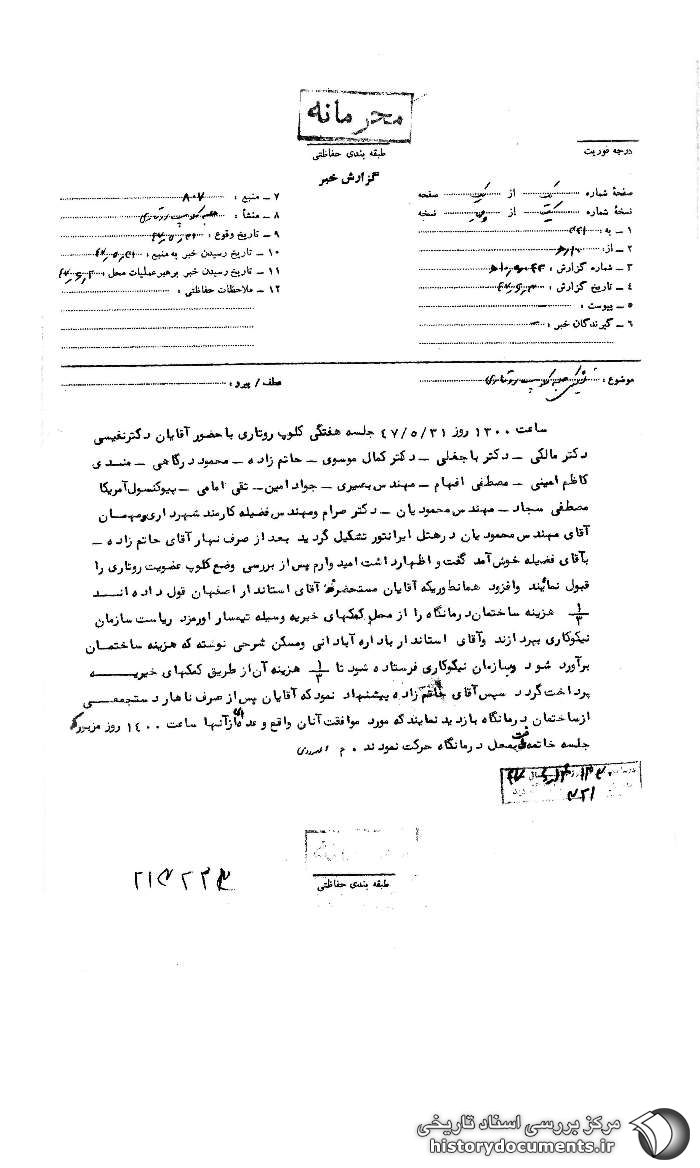 محرمانه
طبقه بندی حفاظتی
گزارش خبر
درجه فوریت
صفحهٔ شماره یک از یک صفحه
نسخهٔ شماره یک از نسخه
۱ ـ به : ۳۴۱
۲ ـ از :
۳ ـ شماره گزارش :
۴ ـ تاریخ گزارش :
۵ ـ پیوست :
۶ ـ گیرندگان خبر :
۷ ـ منبع : ۸۰۷
۸ ـ منشأ :
۹ ـ تاریخ وقوع :
۱۰ ـ تاریخ رسیدن خبر به منبع :
۱۱ ـ تاریخ رسیدن خبر برهبر عملیات محل :
۱۲ ـ ملاحظات حفاظتی :
موضوع : کلوپ روتاری
عطف / پیرو :
ساعت ۱۳۰۰ روز ۴۷/۵/۳۱ جلسه هفتگی کلوپ روتاری با حضور آقایان دکتر نفیسی
دکتر مالکی ـ دکتر باجغلی ـ دکتر کمال موسوی ـ حاتم زاده ـ محمود درگاهی ـ
کاظم امینی ـ مصطفی افهام ـ مهندس بصیری ـ جواد امین ـ تقی امامی ـ بیوکنسول آمریکا
مصطفی سجاد ـ مهندس محمودیان ـ دکتر صرام ومهندس فضیله کارمند شهرداری ومهمان
آقای مهندس محمودیان درهتل ایرانتور تشکیل گردید بعد از صرف نهار آقای حاتم زاده ـ
بآقای فضیله خوش آمد گفت و اظهار داشت امیدوارم پس از بررسی وضع کلوپ عضویت روتاری را
قبول نمائید وافزود همانطوریکه آقایان مستحضرند آقای استاندار اصفهان قول داده انـد
۱/۳ هزینه ساختمان درمانگاه را از محل کمکهای خیریه وسیله تیمسار اورمزد ریاست سازمان
نیکوکاری بپردازند وآقای استاندار باداره آبادانی ومسکن شرحی نوشته که هزینه ساختمـان
برآورد شود وبسازمان نیکوکاری فرستاده شود تا ۱/۳ هزینه آن از طریق کمکهای خیریـــه
پرداخت گردد سپس آقای حاتم زاده پیشنهاد نمود که آقایان پس از صرف ناهار دستجمعـــی
از ساختمان درمانگاه بازدید نمایند که مورد موافقت آنان واقع و عده‌ای از آنها ساعت ۱۴۰۰ روز مزبور که
جلسه خاتمه یافت بمحل درمانگاه حرکت نمودند . م
۳۲۱
طبقه بندی حفاظتی
مرکز بررسی اسناد تاریخی
historydocuments.ir